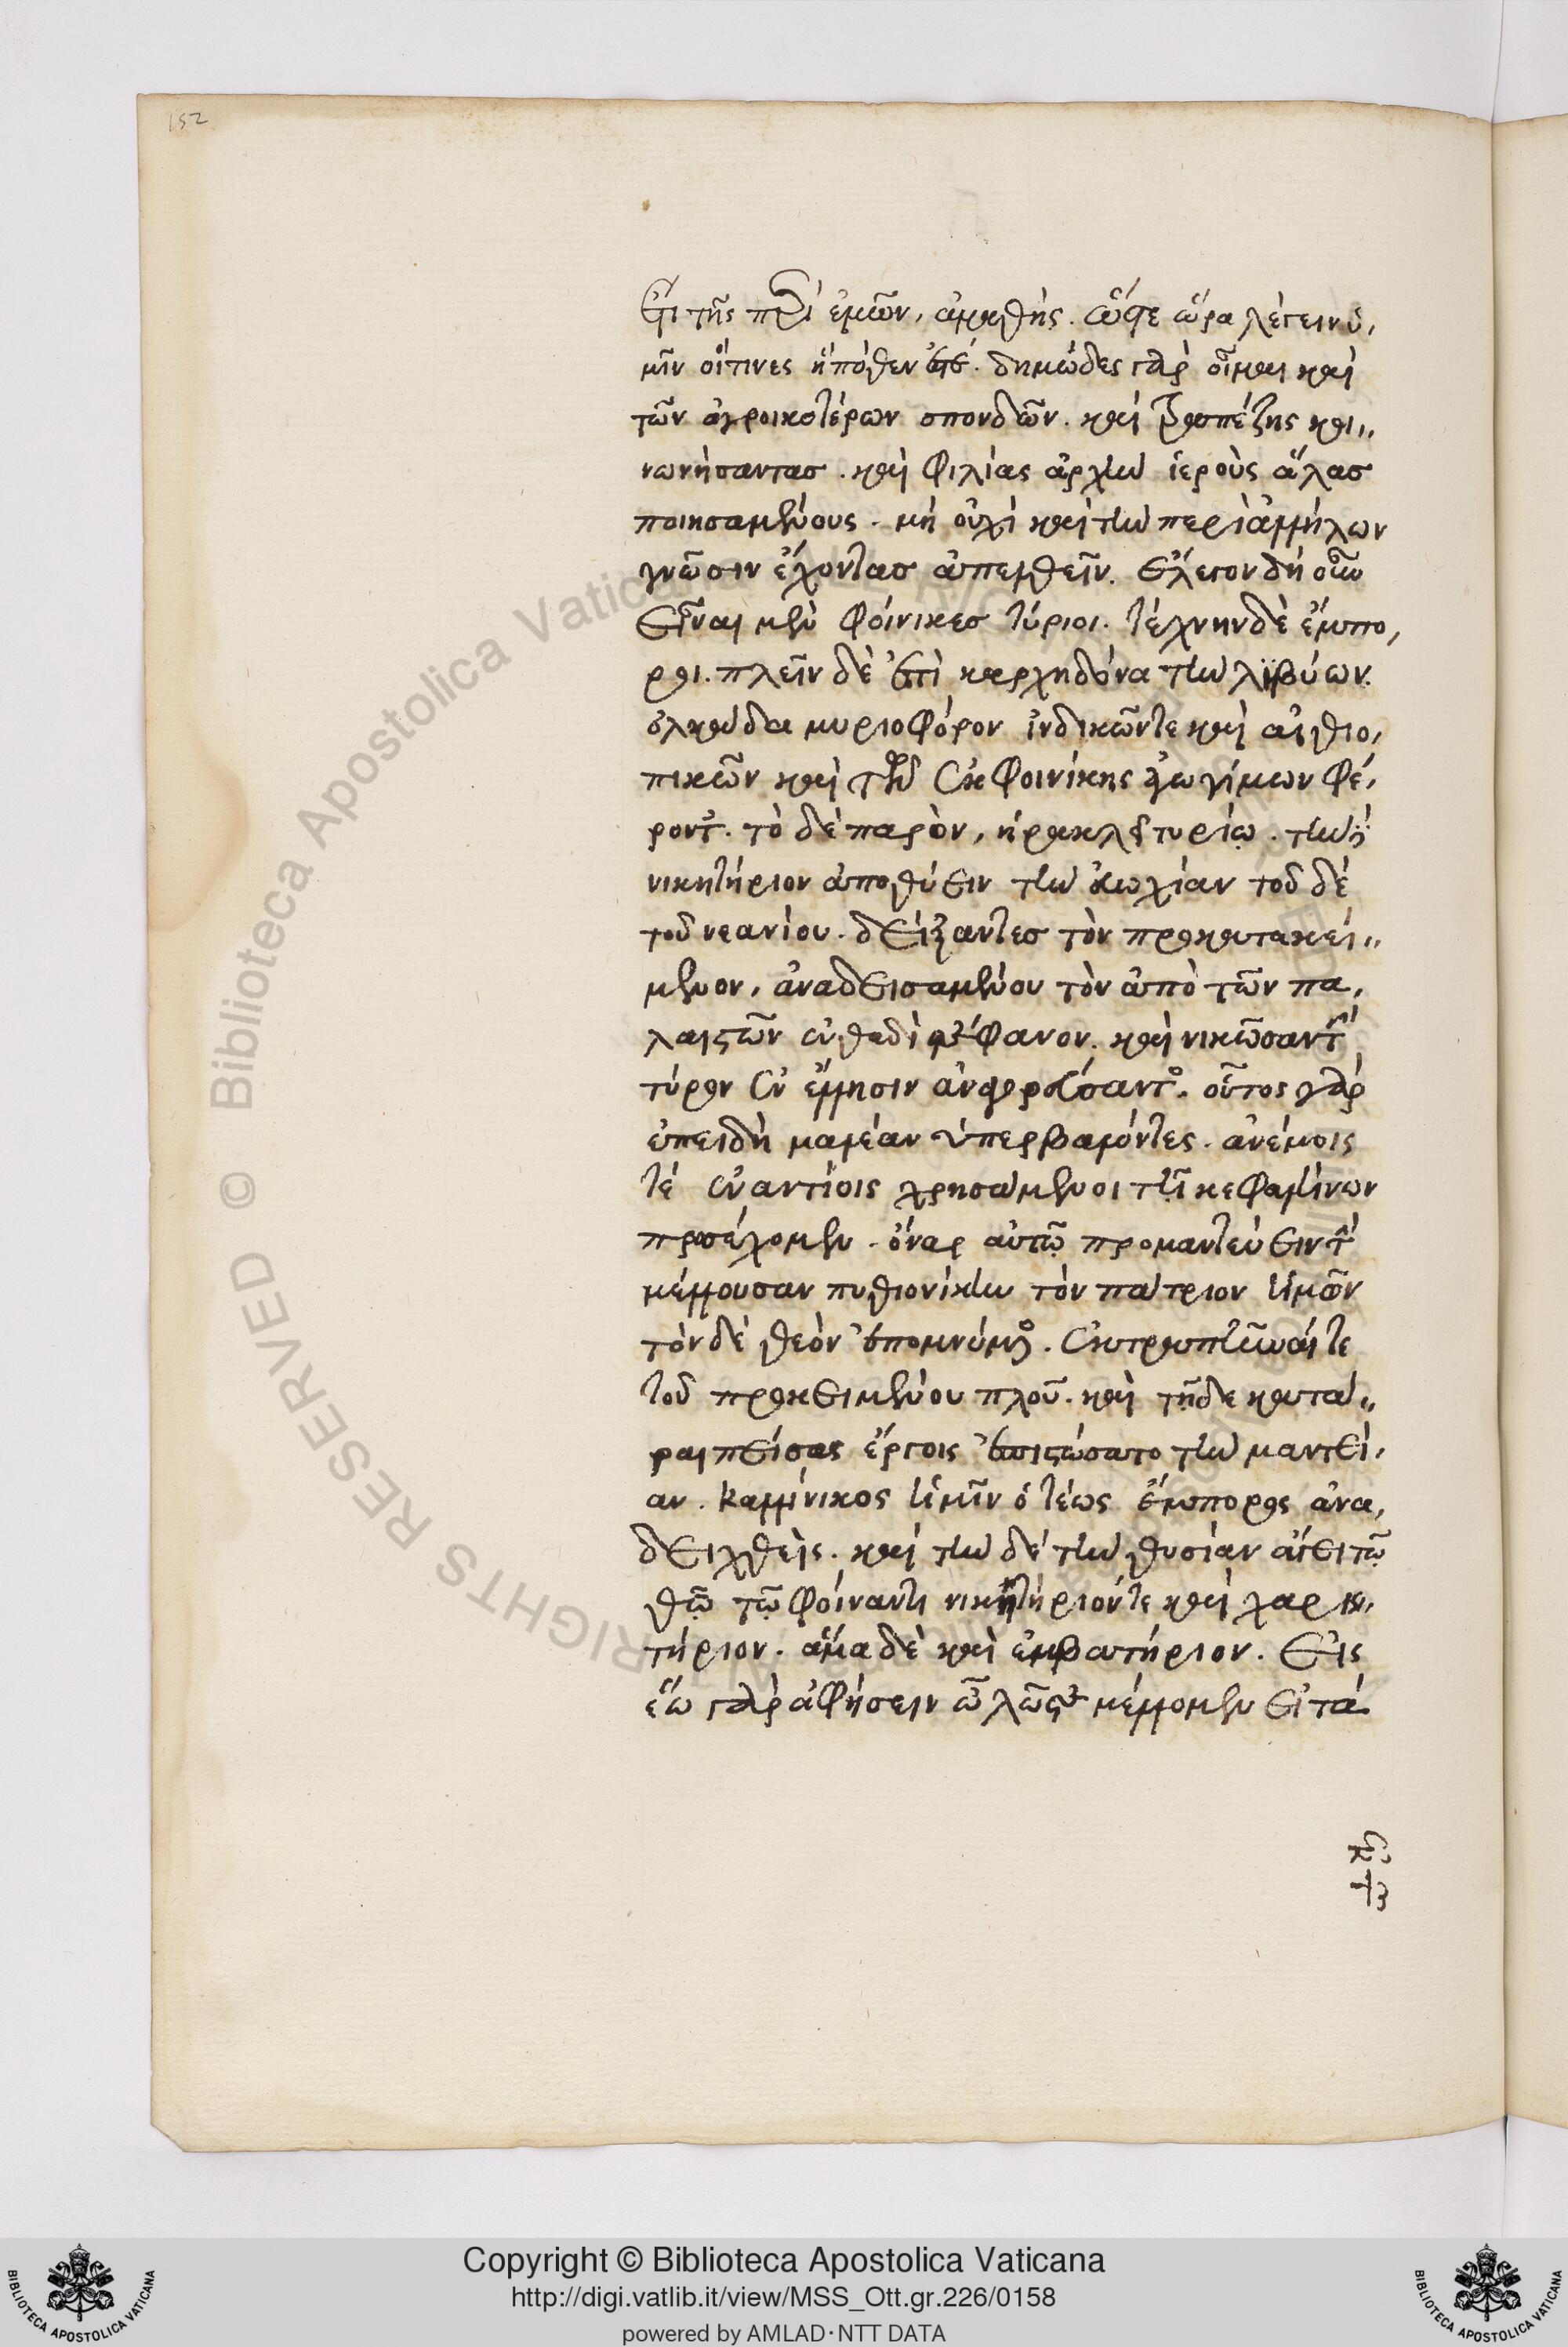 152
ἔτι τῆς περὶ ὑμῶν, ἀμαθής. ὥστε ὥρα λέγειν ὑ,
μῖν οἵτινες ἢ πόθεν ἐστέ. δημῶδες γὰρ οἶμαι καὶ
τῶν ἀγροικοτέρων σπονδῶν. καὶ τραπέζης κοι,,
νωνήσαντασ. καὶ φιλίας ἀρχὴν ἱεροὺς ἅλασ
ποιησαμένους. μὴ οὐχὶ καὶ τὴν περὶ ἀλλήλων
γνῶσιν ἔχοντασ ἀπελθεῖν. ἔλεγον δὴ οὖν
εἶναι μὲν φοίνικεσ τύριοι. τέχνην δὲ ἔμπο,
ροι. πλεῖν δὲ ἐπὶ καρχηδόνα τὴν λιβύων.
ὁλκάδα μυριοφόρον ἰνδικῶν τε καὶ αἰθιο,
πικῶν καὶ τῶν ἐκ φοινίκης ἀγωγίμων φέ,
ροντες. τὸ δὲ παρὸν, ἡρακλεῖ τυρίῳ. τὴν
νικητήριον ἀποθύειν τὴν εὐωχίαν τοῦ δὲ
τοῦ νεανίου. δείξαντεσ τὸν προκατακεί,,
μενον, ἀναδεισαμένου τὸν ἀπὸ τῶν πα,
λαιστῶν ἐνθαδὶ στέφανον. καὶ νικῶσαν τὴν
τύρον ἐν ἕλλησιν ἀναγορεύσαντος. οὗτος γὰρ
ἐπειδὴ μαλέαν ὑπερβαλόντες. ἀνέμοις
τέ ἐναντίοις χρησάμενοι τῇ κεφαλλήνων
προσέχομεν. ὄναρ αὐτῷ προμαντεύειν τὴν
μέλλουσαν πυθιονίκην τὸν πάτριον ἡμῶν
τόνδε θεὸν ἐπομνύμενος. ἐκτραπῆναί τε
τοῦ προκειμένου πλοῦ. καὶ τῇδε κατα,,
ραι πείσας ἔργοις ἐπιστώσατο τὴν μαντεί,
αν. καλλίνικος ἡμῖν ὁ τέως ἔμπορος ἀνα,
δειχθείς. καὶ τὴν δὲ τὴν θυσίαν ἄγει τῷ
θεῷ τῷ φήναντι νικητήριόν τε καὶ χαρισ,
τήριον. ἅμα δὲ καὶ ἐμβατήριον. εἰς
ἕω γὰρ ἀφήσειν ὦ λῶστε μέλλομεν εἰ τὰ
Copyright © Biblioteca Apostolica Vaticana
http://digi.vatlib.it/view/MSS_Ott.gr.226/0158
powered by AMLAD·NTT DATA